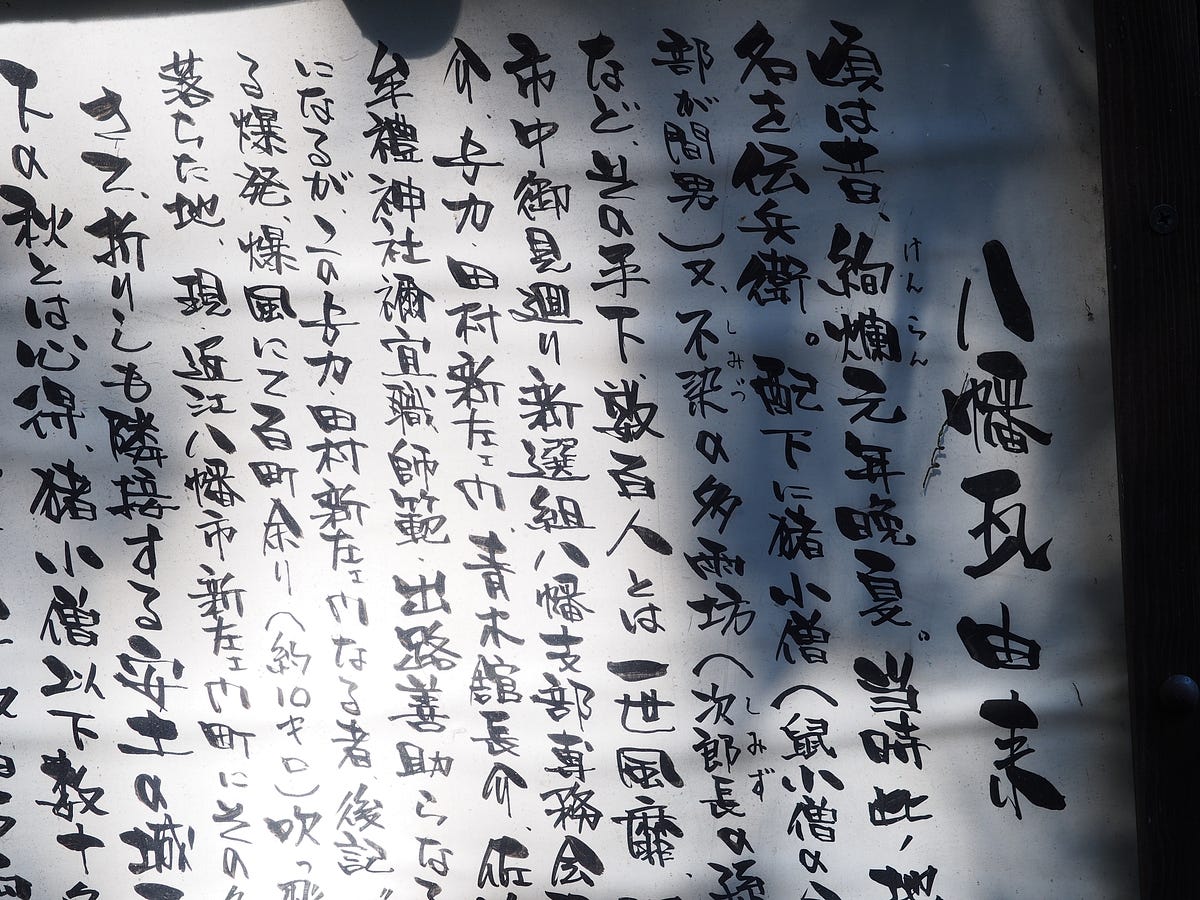 八幡瓦由来
頃は昔、絢爛元年晩夏。当時此ノ地
けんらん
名を伝兵衛。配下に猪小僧(鼠小僧の
部が間男)又、不染の多雲坊(次郎長の孫
しみづ
しみず
など、其の手下、数百人とは一世風靡、
市中御見廻り新選組八幡支部専務会
介、与力、田村新左ェ門、青木舘長介、佐
牟禮神社禰宜職師範、出路善助らなる
になるが、この与力、田村新左ェ門なる者、後記
る爆発、爆風にて百町余り(約10キロ)吹っ飛
落ちた地、現、近江八幡市新左ェ門町にその名
さて、折りしも隣接する安土の城
下の秋とは心得、猪小僧以下数十名